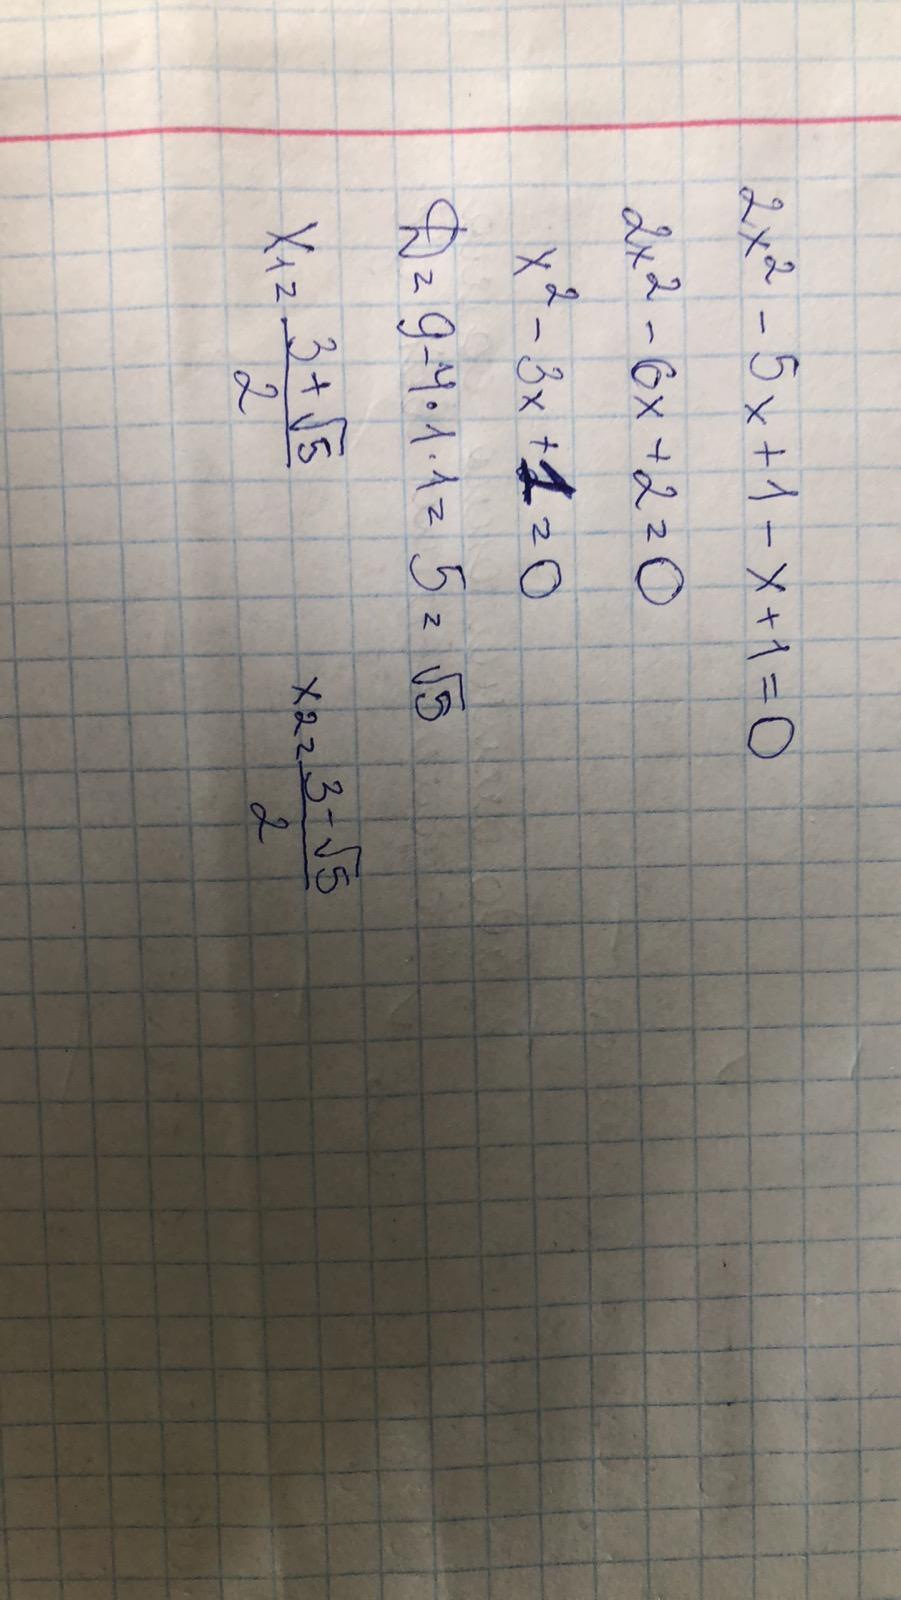 2x² - 5x + 1 - x + 1 = 0
2x² - 6x + 2 = 0
x² - 3x + 1 = 0
D = 9 - 4 · 1 · 1 = 5 = √5
x1 = (3 + √5)/2    x2 = (3 - √5)/2